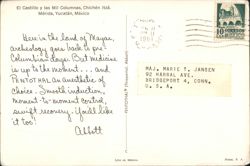 El Castillo y las Mil Columnas, Chichén Itzá.
Mérida, Yucatán, México
Here in the land of Mayas,
archeology goes back to pre-
Columbian days. But medicine
is up to the moment... and
PENTOTHAL an anesthetic of
choice. Smooth induction,
moment-to-moment control,
swift recovery. You'll like
it too!
Abbott
MAJ. MARIE T. JANSEN
92 HARRAL AVE.
BRIDGEPORT 4, CONN.
U. S. A.